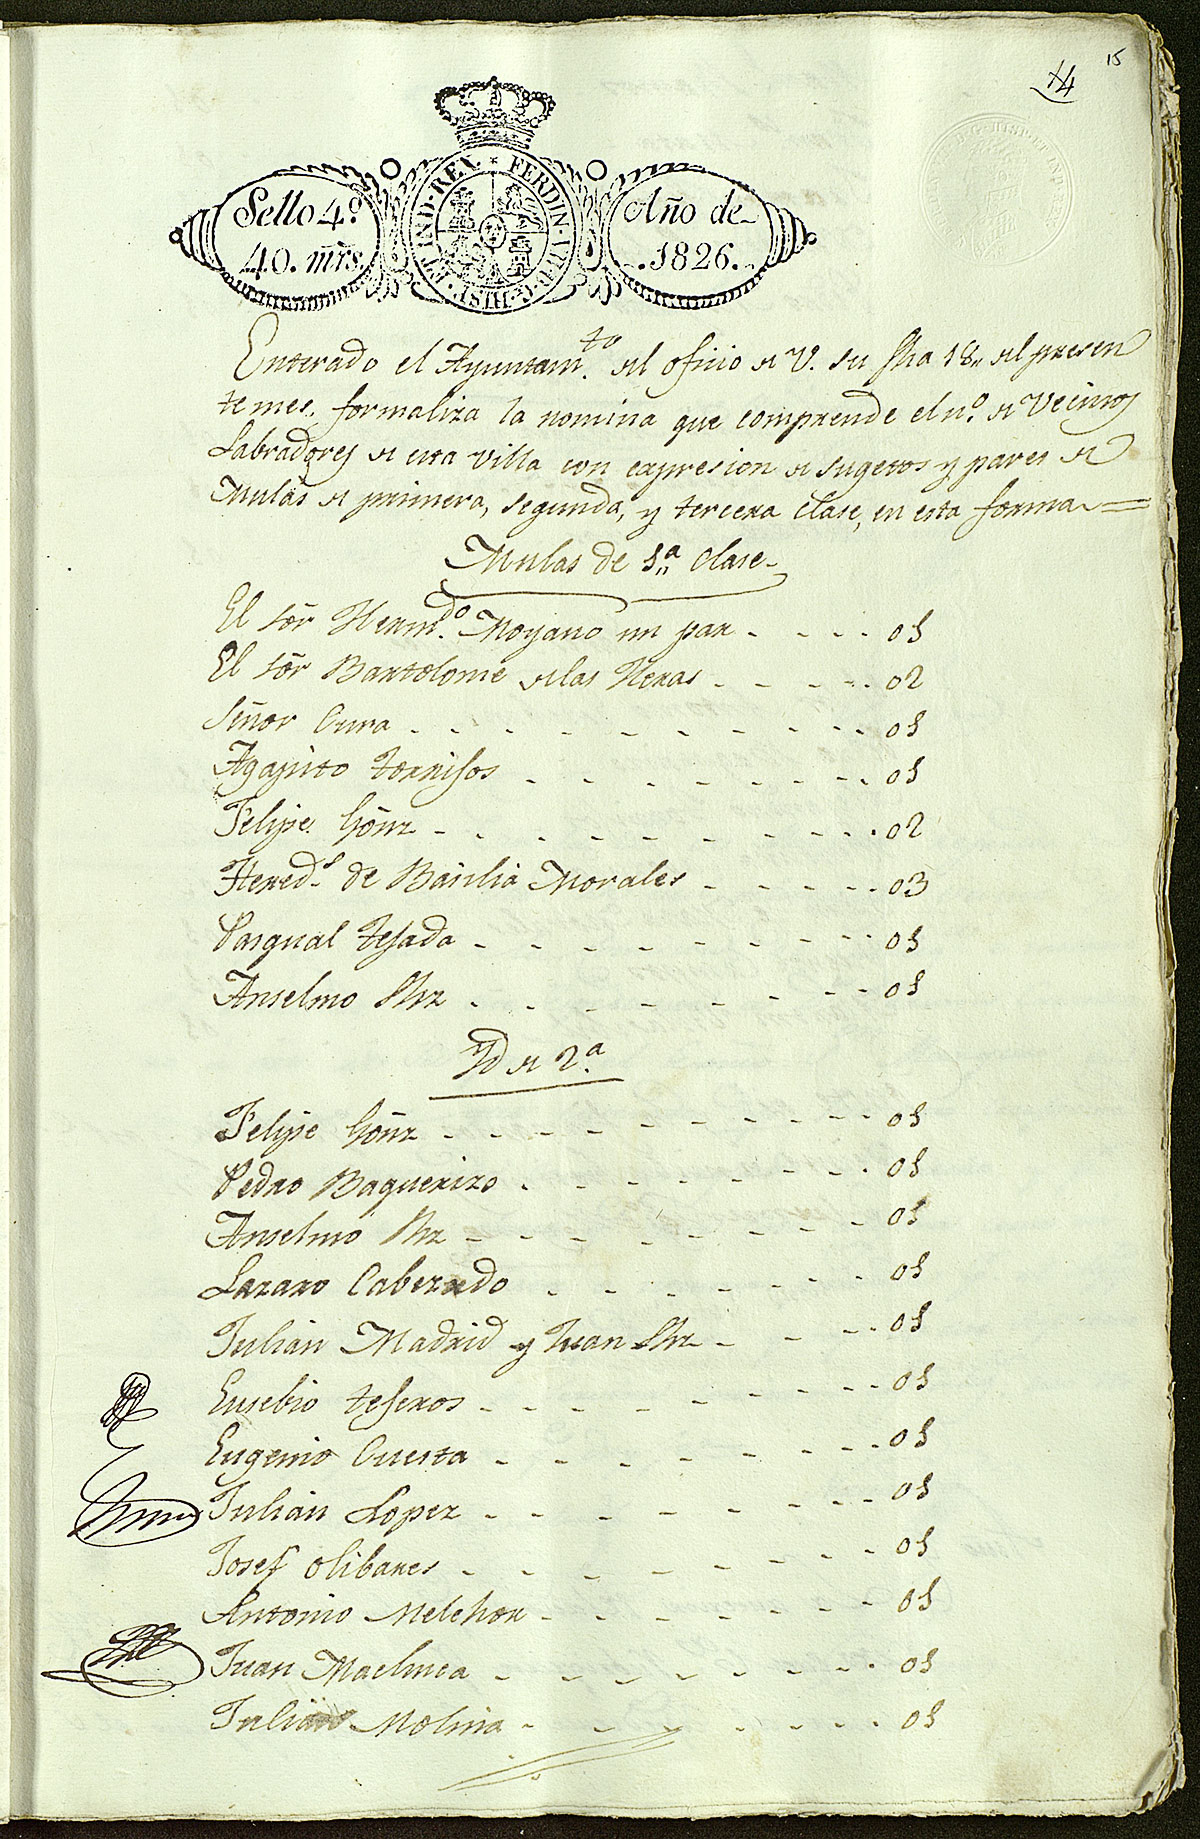 15
14
Sello 4.º
40. mrs.
FERDIN·VII·D·G·HISP·ET IND·REX
Año de
1826.
Enterado el Ayuntam.to del oficio de V. su fha 18,, del presen
te mes, formaliza la nomina que comprende el n.º de Vecinos
Labradores de esta villa con expresion de sugetos y pares de
Mulas de primera, segunda, y tercera clase, en esta forma =
Mulas de 1.ª clase
El sõr Herm.do Moyano un par - - - - 01
El sõr Bartolome delas Heras - - - - - 02
Señor Cura - - - - - - - - - - 01
Agapito Torrijos - - - - - - - - 01
Felipe Gõnz - - - - - - - - - 02
Hered.s de Basilia Morales - - - - - 03
Pasqual Tejada - - - - - - - - - 01
Anselmo Shz - - - - - - - - 01
Yd de 2.ª
Felipe Gõnz - - - - - - - - - - 01
Pedro Baquerizo - - - - - - - 01
Anselmo Shz - - - - - - - - - 01
Lazaro Caberedo - - - - - - - 01
Julian Madrid y Juan Shz - - - - 01
Eusebio Teseros - - - - - - - - 01
Eugenio Cuesta - - - - - - - - 01
Julian Lopez - - - - - - - - 01
Josef Olibares - - - - - - - - 01
Antonio Melchor - - - - - - - - 01
Juan Machuca - - - - - - - - 01
Julian Molina - - - - - - - 01